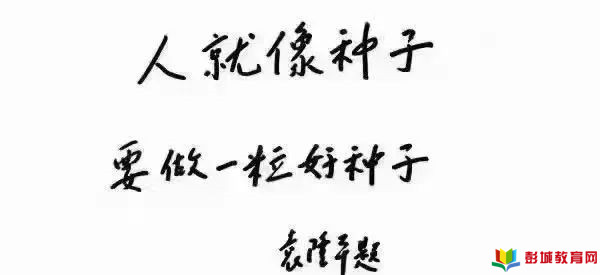 人就像种子
要做一粒好种子
袁隆平题
彭城教育网